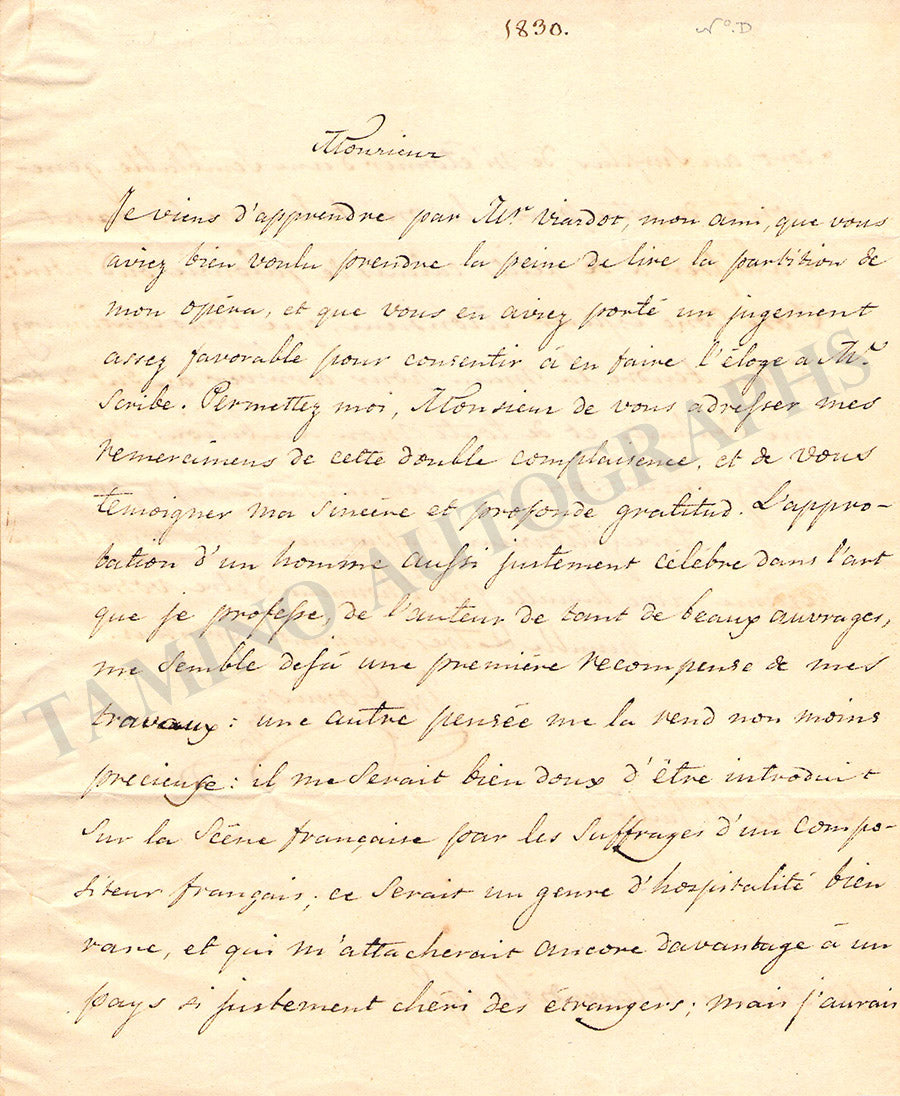 1830. N°. D
Monsieur
Je viens d'apprendre par Mr. Viardot, mon ami, que vous
aviez bien voulu prendre la peine de lire la partition de
mon opéra, et que vous en aviez porté un jugement
assez favorable pour consentir à en faire l'éloge a Mr.
Scribe. Permettez moi, Monsieur de vous adresser mes
remercimens de cette double complaisence, et de vous
temoigner ma sincère et profonde gratitud. L'appro-
bation d'un homme aussi justement célébre dans l'art
que je professe, de l'auteur de tant de beaux auvrages,
me semble dejá une première recompense de mes
travaux: une autre pensée me la rend non moins
precieuse: il me serait bien doux d'être introduit
sur la Scêne française par les suffrages d'un compo-
siteur français; ce serait un genre d'hospitalité bien
rare, et qui m'attacherait ancore davantage à un
pays si justement chéri des étrangers; mais j'aurais
TAMINO AUTOGRAPHS